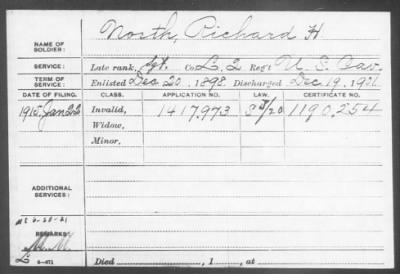 North, Richard H
NAME OF SOLDIER:
SERVICE: Late rank, Sgt. Co. L, 2 Reg't U. S. Cav.
TERM OF SERVICE: Enlisted Dec 20, 1898. Discharged Dec 19, 1901.
DATE OF FILING. CLASS. APPLICATION NO. LAW. CERTIFICATE NO.
1915, Jan 22 Invalid, 1417,973 1190,254
Widow,
Minor,
ADDITIONAL SERVICES:
6-20-21
REMARKS:
Died , 1 , at